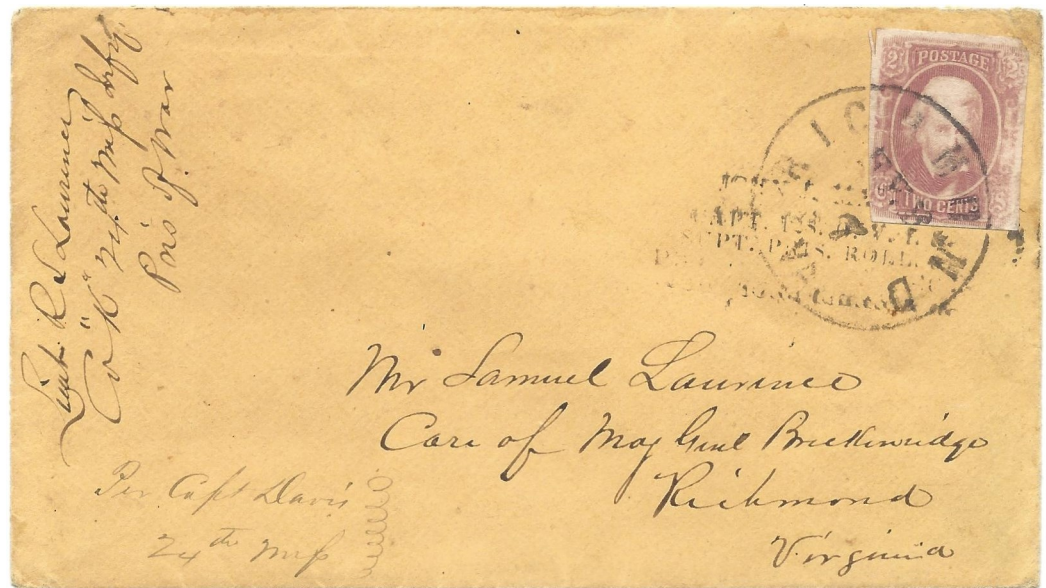 Lieut. R S Laurence
Co "K" 24th Miss Infy
Pris of War
2 POSTAGE 2
TWO CENTS
RICHMOND
CAPT. 128.
SUPT. PRIS. ROLL.
Mr Samuel Laurence
Care of Maj Genl Breckenridge
Richmond
Virginia
Per Capt Davis
24th Miss